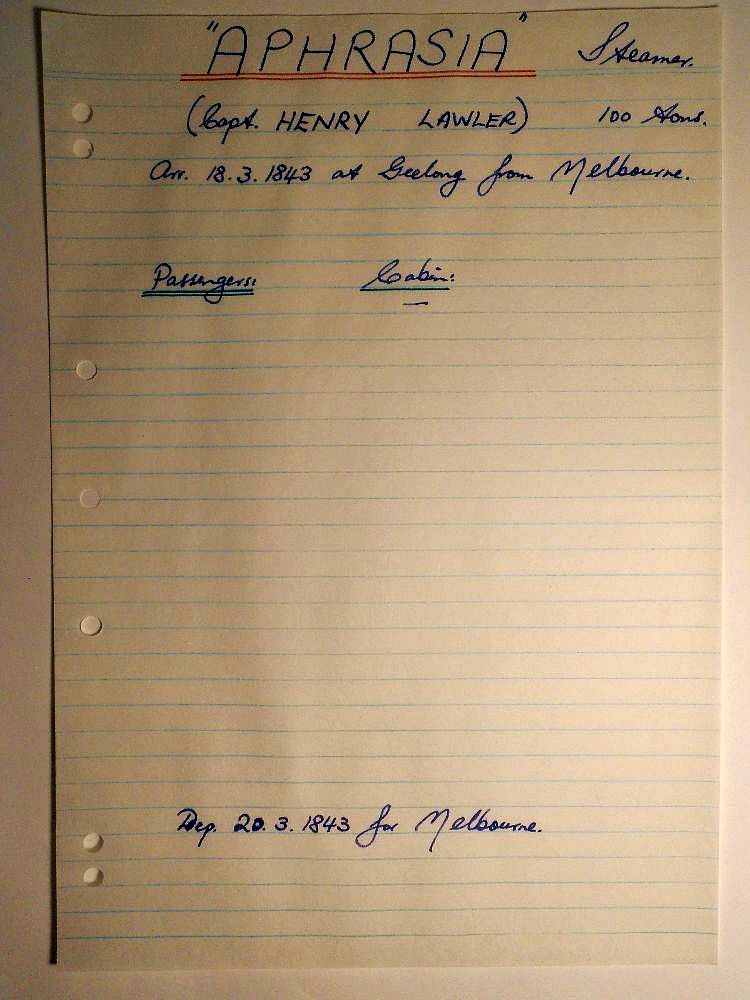 "APHRASIA" Steamer.
(Capt. HENRY LAWLER) 100 tons.
Arr. 18.3.1843 at Geelong from Melbourne.
Passengers: Cabin:
—
Dep. 20.3.1843 for Melbourne.